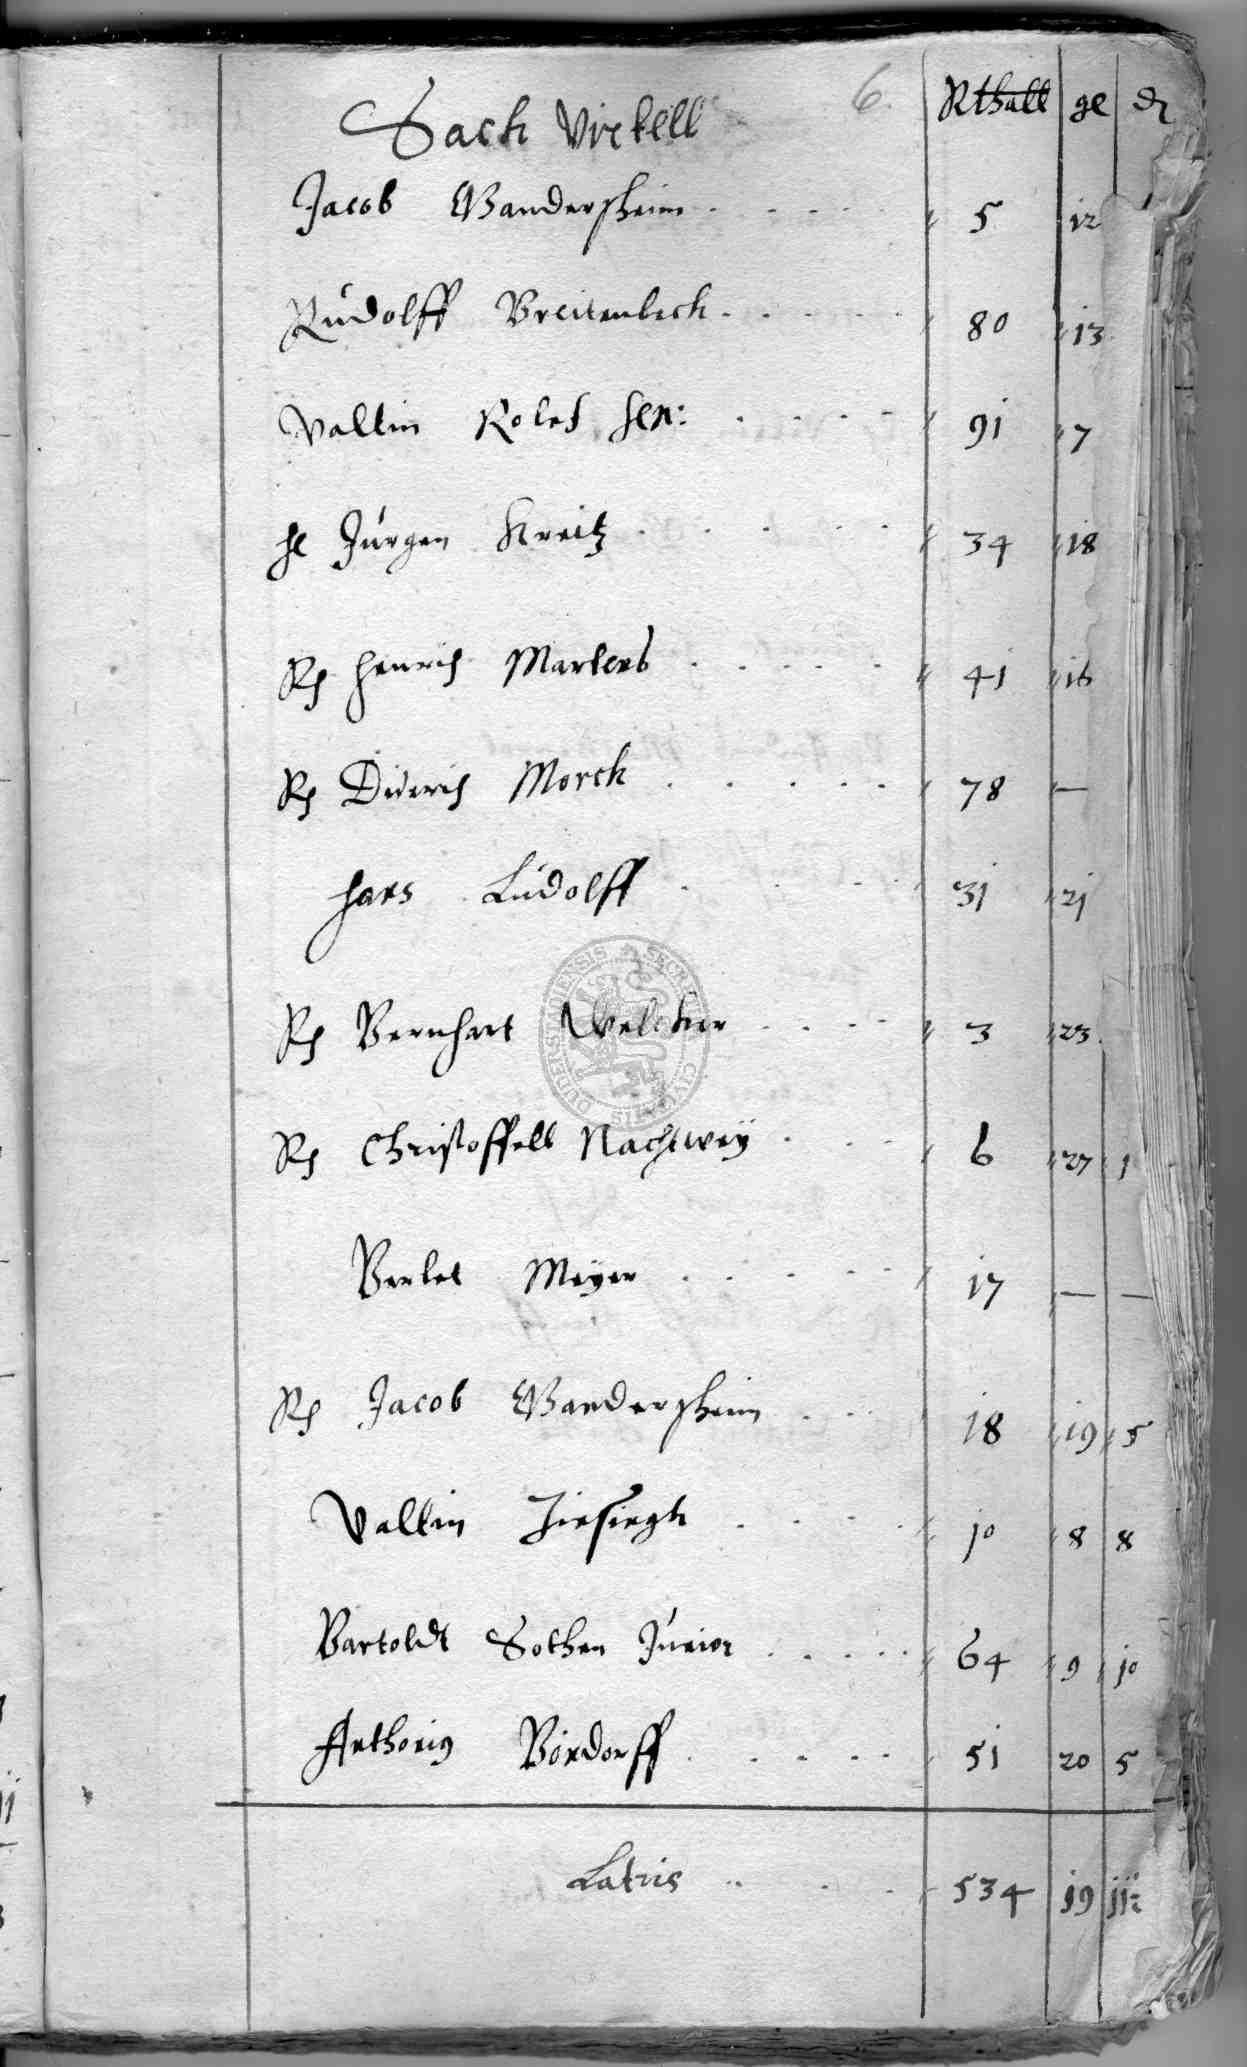 6. Rthall gl d
Sack Virtell
Jacob Wandersheim . . . . 5 12
Rudolff Breitenbech . . . . . 80 13
Valtin Roleff sen: . . . . 91 7
H Jürgen Kreitz . . . . . 34 18
Rh Henrich Martens . . . . . 41 16
Rh Diderich Morck . . . . . 78 —
Hans Ludolff . . . . 31 21
Rh Bernhart Welcker . . . . 3 23
Rh Christoffell Nachtweÿ . . . 6 27 1
Berlet Meÿer . . . . . 17 — —
Rh Jacob Wandersheim . . . 18 19 5
Valtin Ziesingh . . . . 10 8 8
Bartoldt Sothen Junior . . . . . 64 9 10
Anthonius Böndorff . . . . . 51 20 5
Latris . . . 534 19 11